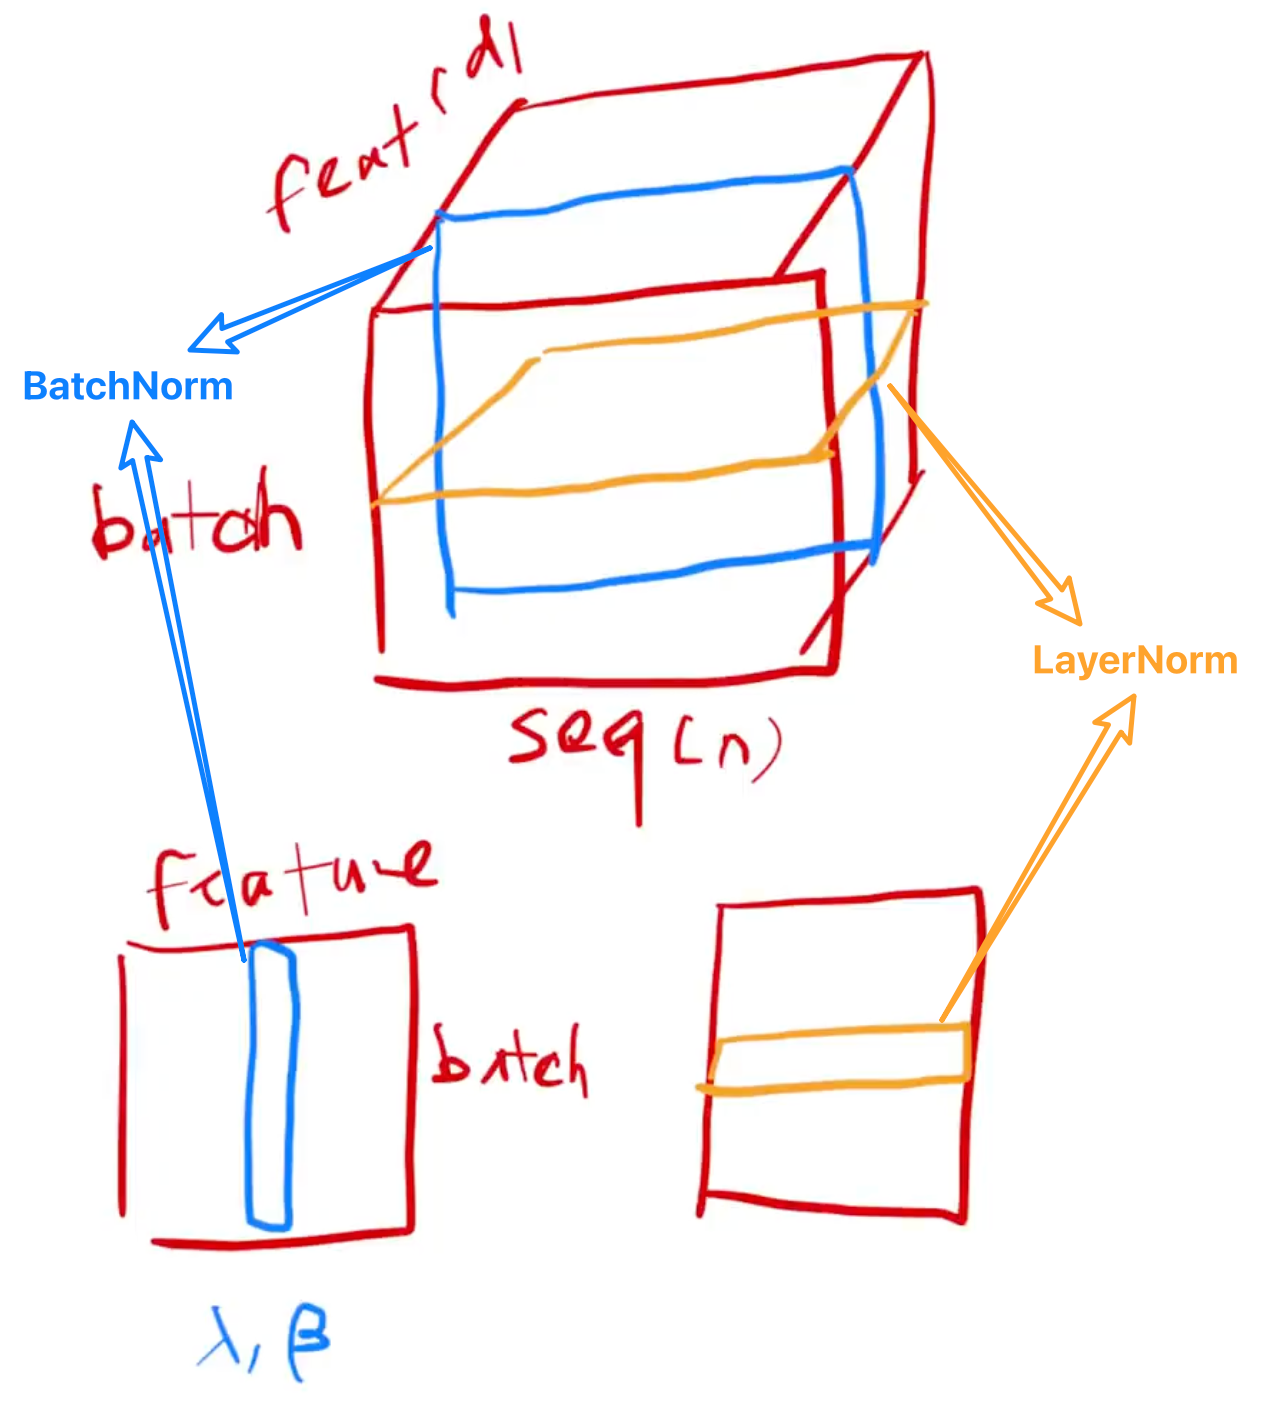 feat (d)
BatchNorm
batch
LayerNorm
seq (n)
feature
batch
λ, β